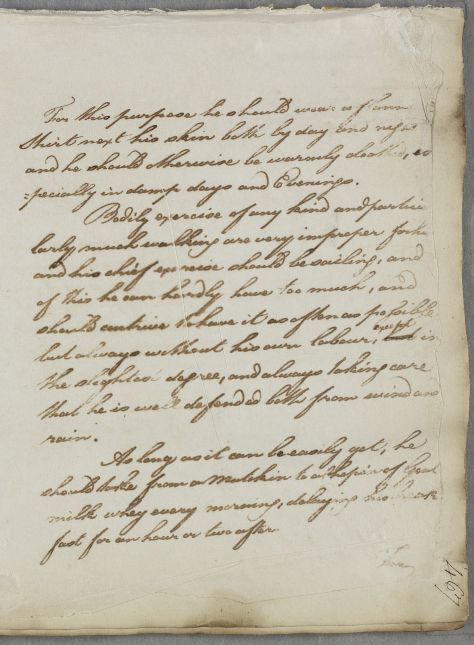 For this purpose he should wear a flann
Shirt next his skin both by day and night
and he should otherwise be warmly cloathed, es
=pecially in damp days and Evenings.
Bodily exercise of any kind and particu
larly much walking are very improper for he
and his chief exercise should be sailing, and
of this he can hardly have too much, and
should contrive to have it as often as possible
but always without his own labour, except in
the slightest degree, and always taking care
that he is well defended both from wind and
rain.
As long as it can be easily get, he
should take from a Mutchkin to a chopin of Goat
milk whey every morning, delaying his break
fast for an hour or two after
497